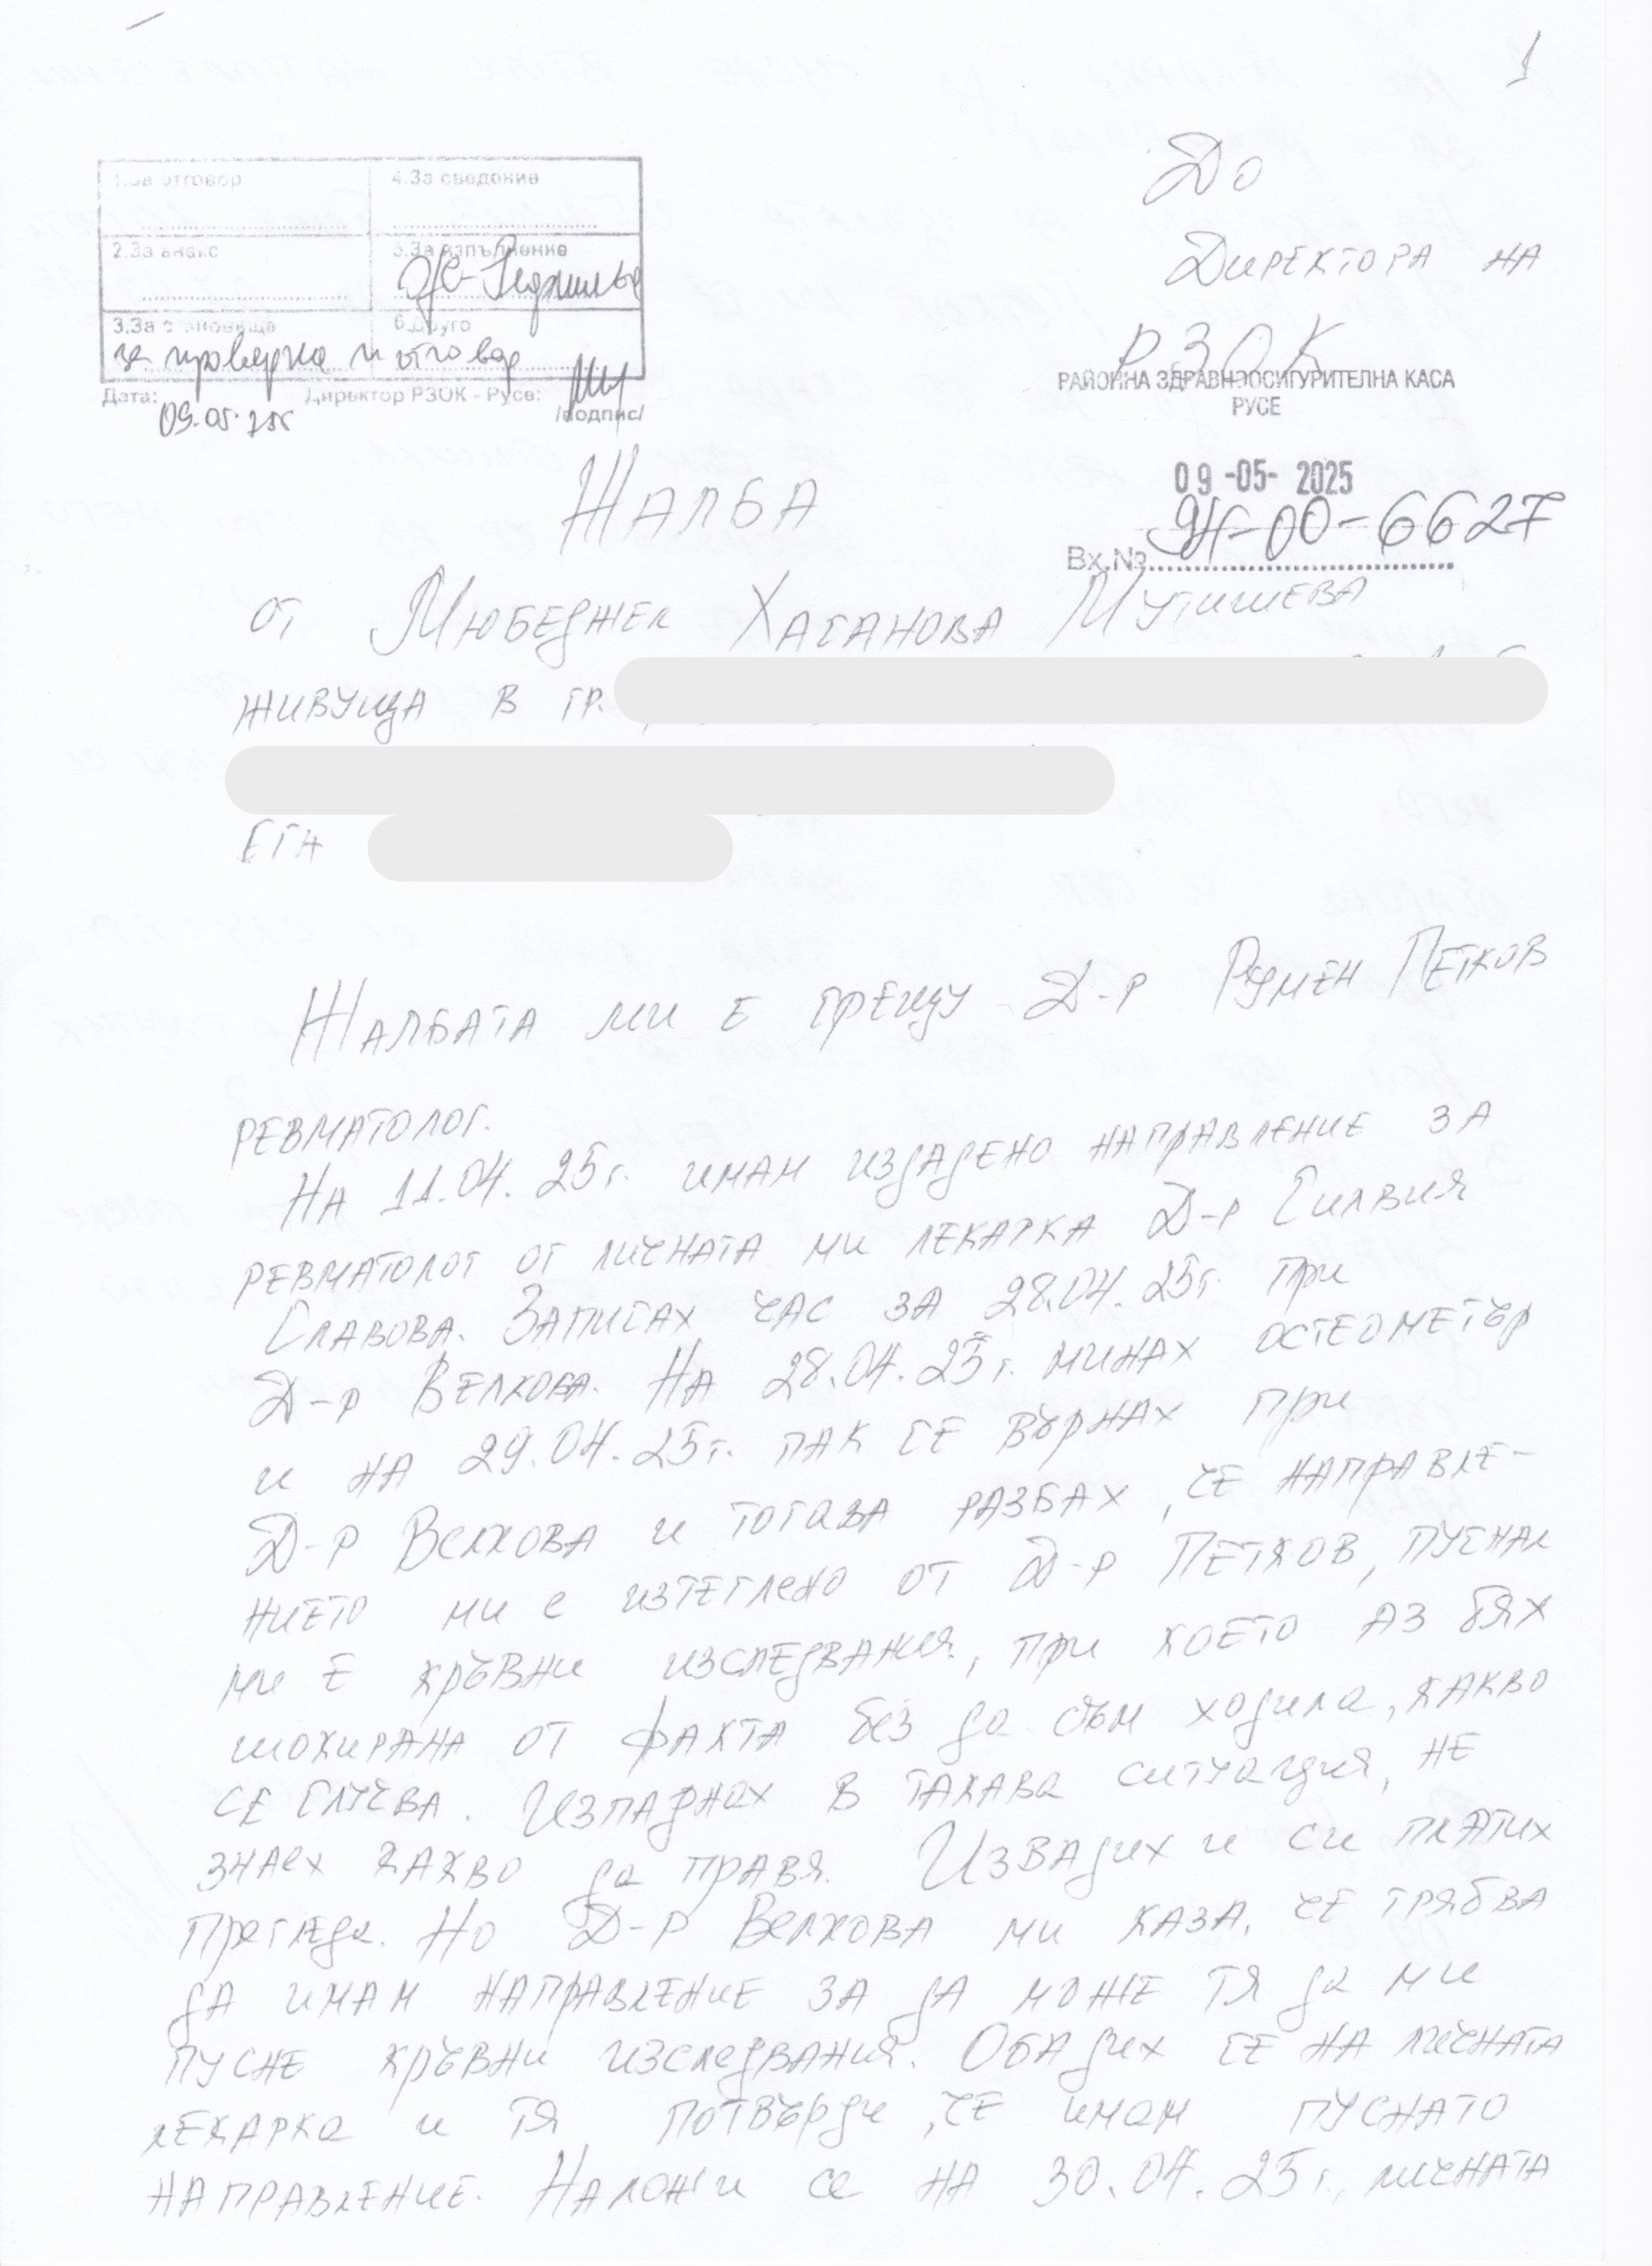 1
До
Директора на
РЗОК
РАЙОННА ЗДРАВНООСИГУРИТЕЛНА КАСА
РУСЕ
09-05-2025
Вх.№ 94-00-6627
1.За отговор
4.За сведение
2.За анекс
5.За изпълнение
3.За становище
6.Друго
за проверка и отговор
Дата: 09.05.25г
Директор РЗОК - Русе:
/подпис/
Жалба
от Мюбеджел Хасанова Мутишева
живуща в гр.
ЕГН
Жалбата ми е срещу Д-р Румен Петков
ревматолог.
На 11.04.25г. имам издадено направление за
ревматолог от личната ми лекарка Д-р Силвия
Славова. Записах час за 28.04.25г. при
Д-р Велкова. На 28.04.25г. минах остеометър
и на 29.04.25г. пак се върнах при
Д-р Велкова и тогава разбах, че направле-
нието ми е изтеглено от Д-р Петков, пуснал
ми е кръвни изследвания, при което аз бях
шокирана от факта без да съм ходила, какво
се случва. Изпаднах в такава ситуация, не
знаех какво да правя. Извадих и си платих
прегледа. Но Д-р Велкова ми каза, че трябва
да имам направление за да може тя да ми
пусне кръвни изследвания. Обадих се на личната
лекарка и тя потвърди, че имам пуснато
направление. Наложи се на 30.04.25г., личната